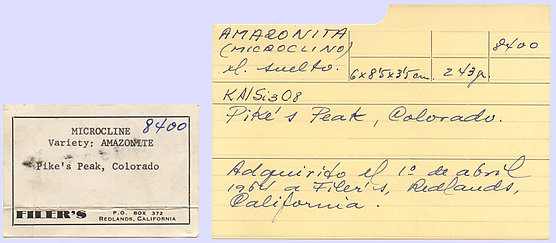 MICROCLINE 8400
Variety: AMAZONITE
Pike's Peak, Colorado
FILER'S P.O. BOX 372
REDLANDS, CALIFORNIA
AMAZONITA
(MICROCLINO) 8400
xl. suelto. 6x8'5x3'5cm. 243gr.
KAlSi3O8
Pike's Peak, Colorado.
Adquirito el 1º de abril
a Filer's, Redlands,
California.